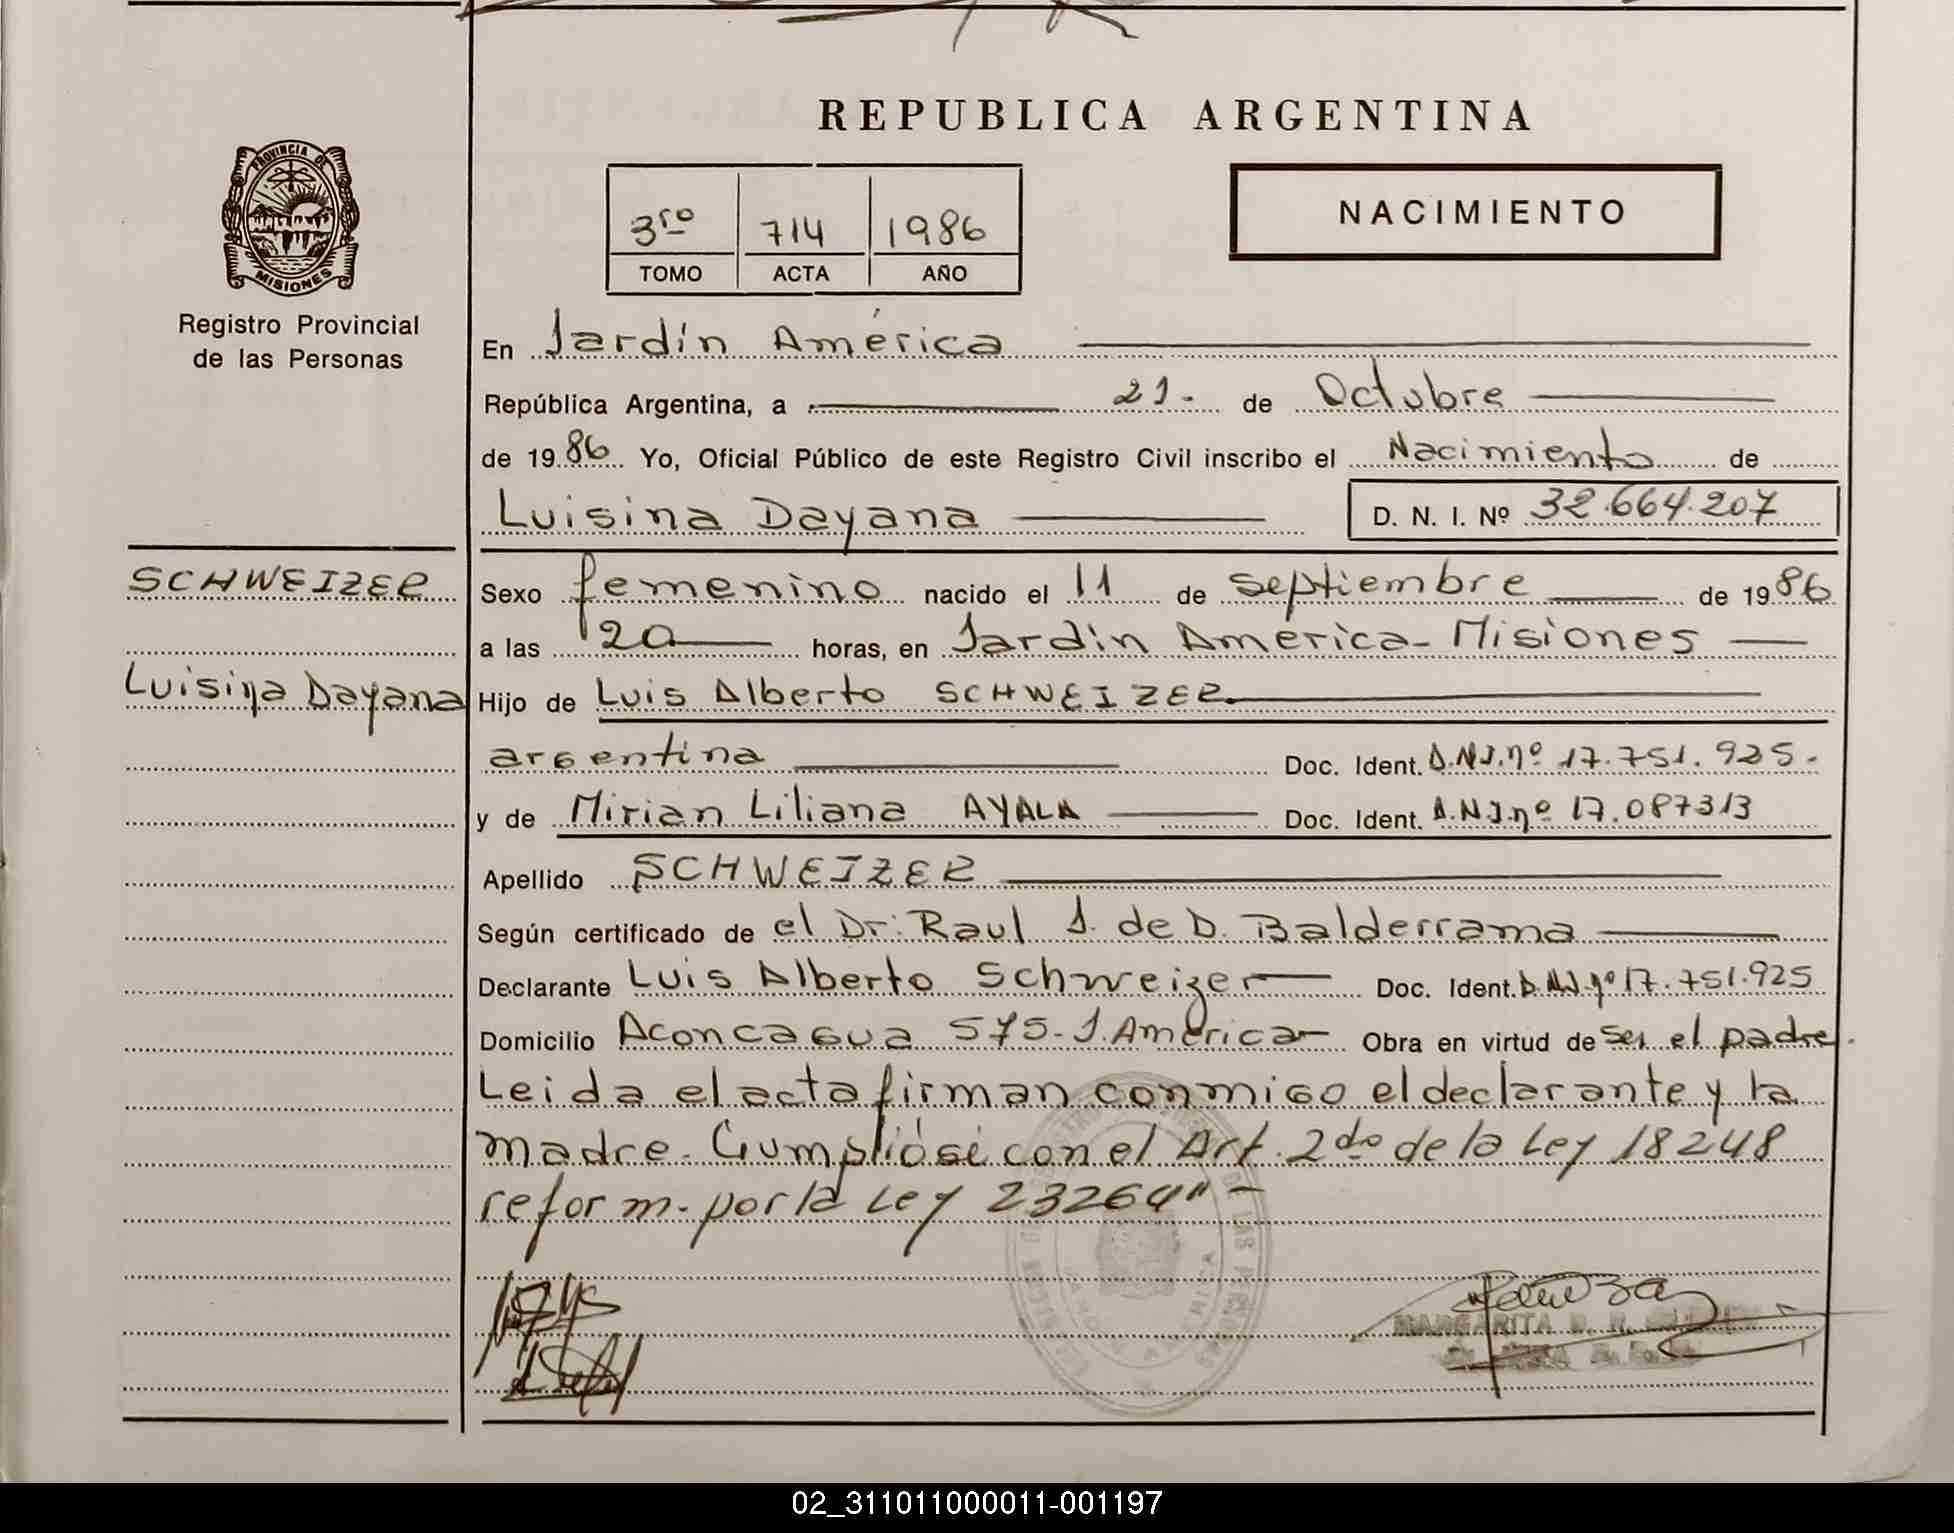 REPUBLICA ARGENTINA
PROVINCIA DE
MISIONES
Registro Provincial
de las Personas
3ro 714 1986
TOMO ACTA AÑO
NACIMIENTO
En Jardín América
República Argentina, a 21. de Octubre
de 1986 Yo, Oficial Público de este Registro Civil inscribo el Nacimiento de
Luisina Dayana D. N. I. Nº 32.664.207
SCHWEIZER
Luisina Dayana
Sexo femenino nacido el 11 de septiembre de 1986
a las 20 horas, en Jardín América - Misiones
Hijo de Luis Alberto SCHWEIZER
argentina Doc. Ident. D.N.I. nº 17.751.925.
y de Mirian Liliana AYALA Doc. Ident. D.N.I. nº 17.087313
Apellido SCHWEIZER
Según certificado de el Dr. Raul J. de D. Balderrama
Declarante Luis Alberto Schweizer Doc. Ident. D.N.I. nº 17.751.925
Domicilio Aconcagua 575- J. América Obra en virtud de ser el padre.
Leida el acta firman conmigo el declarante y la
madre. Cumplióse con el Art. 2do de la Ley 18248
reform. por la Ley 23264" -
MARGARITA
02_311011000011-001197